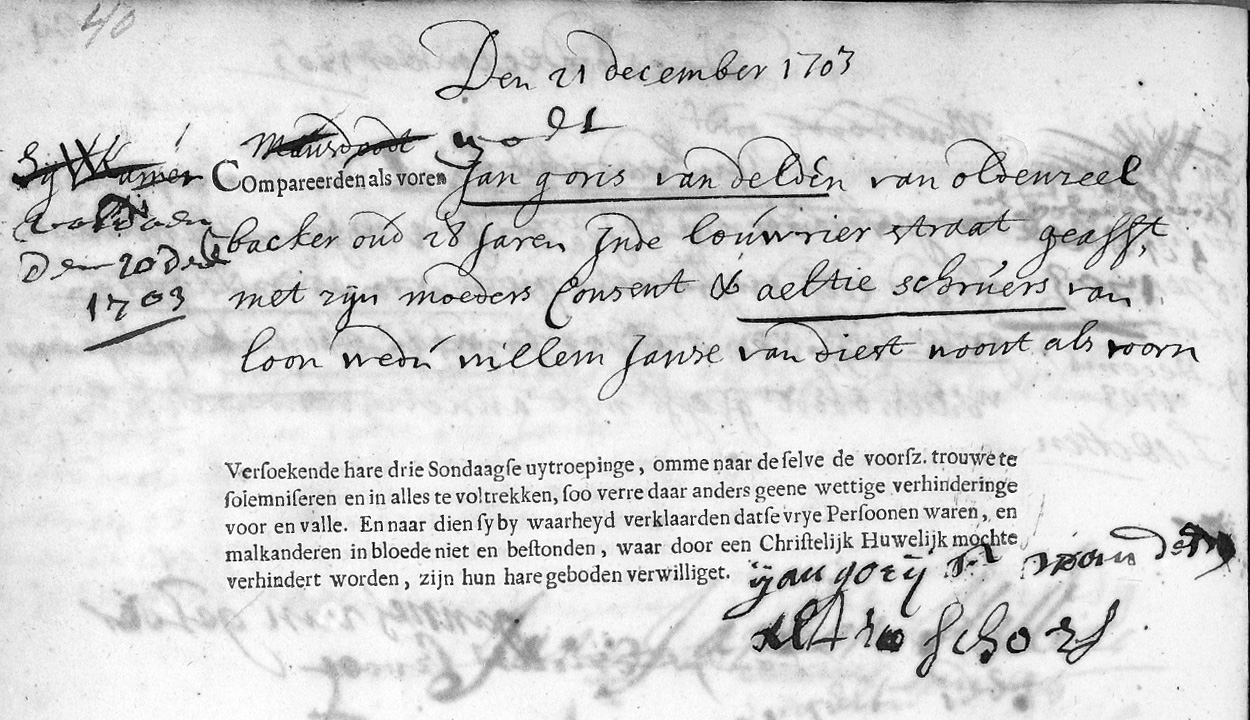 40
Den 21 december 1703
Compareerden als voren Jan goris van delden van oldenzeel
backer oud 28 Jaren Inde louwrier straat geasst
met zijn moeders Consent & aeltie schruers van
loon wedu willem Janse van diest woont als voorn
den 20 dec
1703
Versoekende hare drie Sondaagse uytroepinge, omme naar deselve de voorsz. trouwe te
solemniseren en in alles te voltrekken, soo verre daar anders geene wettige verhinderinge
voor en valle. En naar dien sy by waarheyd verklaarden datse vrye Persoonen waren, en
malkanderen in bloede niet en bestonden, waar door een Christelijk Huwelijk mochte
verhindert worden, zijn hun hare geboden verwilliget.